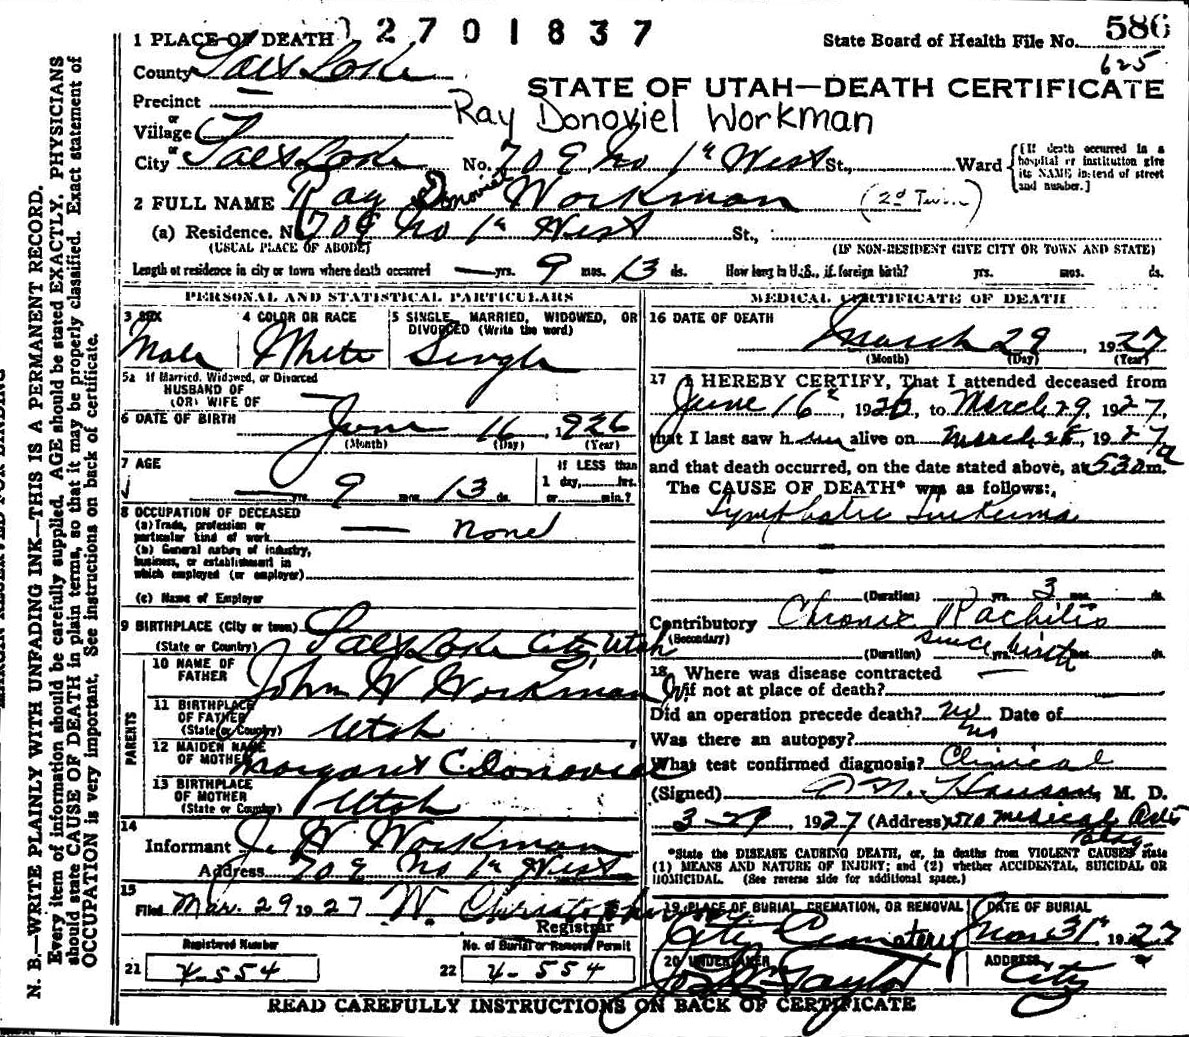 1 PLACE OF DEATH 2 7 0 1 8 3 7
State Board of Health File No. 586
625
County Salt Lake
STATE OF UTAH—DEATH CERTIFICATE
Precinct
or
Village
Ray Donoviel Workman
or
City Salt Lake No. 709 No 1st West St., Ward
[If death occurred in a hospital or institution give its NAME instead of street and number.]
2 FULL NAME Ray Donoviel Workman (2d Twin)
(a) Residence. No. 709 No 1st West St.,
(USUAL PLACE OF ABODE) (IF NON-RESIDENT GIVE CITY OR TOWN AND STATE)
Length of residence in city or town where death occurred — yrs. 9 mos. 13 ds. How long in U.S., if foreign birth? yrs. mos. ds.
PERSONAL AND STATISTICAL PARTICULARS
3 SEX 4 COLOR OR RACE 5 SINGLE, MARRIED, WIDOWED, OR
DIVORCED (Write the word)
Male White Single
5a If Married, Widowed, or Divorced
HUSBAND OF
(OR) WIFE OF
6 DATE OF BIRTH June 16, 1926
(Month) (Day) (Year)
7 AGE — yrs. 9 mos. 13 ds.
If LESS than
1 day, hrs.
or min.?
8 OCCUPATION OF DECEASED
(a) Trade, profession or
particular kind of work — None
(b) General nature of industry,
business, or establishment in
which employed (or employer)
(c) Name of Employer
9 BIRTHPLACE (City or town) Salt Lake City, Utah
(State or Country)
PARENTS
10 NAME OF
FATHER John W Workman
11 BIRTHPLACE
OF FATHER
(State or Country) Utah
12 MAIDEN NAME
OF MOTHER Margaret C. Donoviel
13 BIRTHPLACE
OF MOTHER
(State or Country) Utah
14
Informant J. W. Workman
Address 709 No 1st West
15
Filed Mar. 29 1927 W. Christopherson
Registrar
Registered Number No. of Burial or Removal Permit
21 4-554 22 4-554
MEDICAL CERTIFICATE OF DEATH
16 DATE OF DEATH
March 29, 1927
(Month) (Day) (Year)
17 I HEREBY CERTIFY, That I attended deceased from
June 16th, 1926, to March 29, 1927,
that I last saw him alive on March 28, 1927,
and that death occurred, on the date stated above, at 530 a m.
The CAUSE OF DEATH* was as follows:
Lymphatic Leukemia
(Duration) yrs. 3 mos. ds.
Contributory Chronic Rachitis
(Secondary)
(Duration) since birth yrs. mos. ds.
18 Where was disease contracted
if not at place of death?
Did an operation precede death? no Date of
Was there an autopsy? no
What test confirmed diagnosis? Clinical
(Signed) M. D.
3-29, 1927 (Address) 510 Medical Arts
Bldg.
*State the DISEASE CAUSING DEATH, or, in deaths from VIOLENT CAUSES state
(1) MEANS AND NATURE OF INJURY; and (2) whether ACCIDENTAL, SUICIDAL OR
HOMICIDAL. (See reverse side for additional space.)
19 PLACE OF BURIAL, CREMATION, OR REMOVAL DATE OF BURIAL
City Cemetery Mar 31st 1927
20 UNDERTAKER ADDRESS
Taylor City
READ CAREFULLY INSTRUCTIONS ON BACK OF CERTIFICATE
N. B.—WRITE PLAINLY WITH UNFADING INK—THIS IS A PERMANENT RECORD.
Every item of information should be carefully supplied. AGE should be stated EXACTLY. PHYSICIANS
should state CAUSE OF DEATH in plain terms, so that it may be properly classified. Exact statement of
OCCUPATION is very important. See instructions on back of certificate.